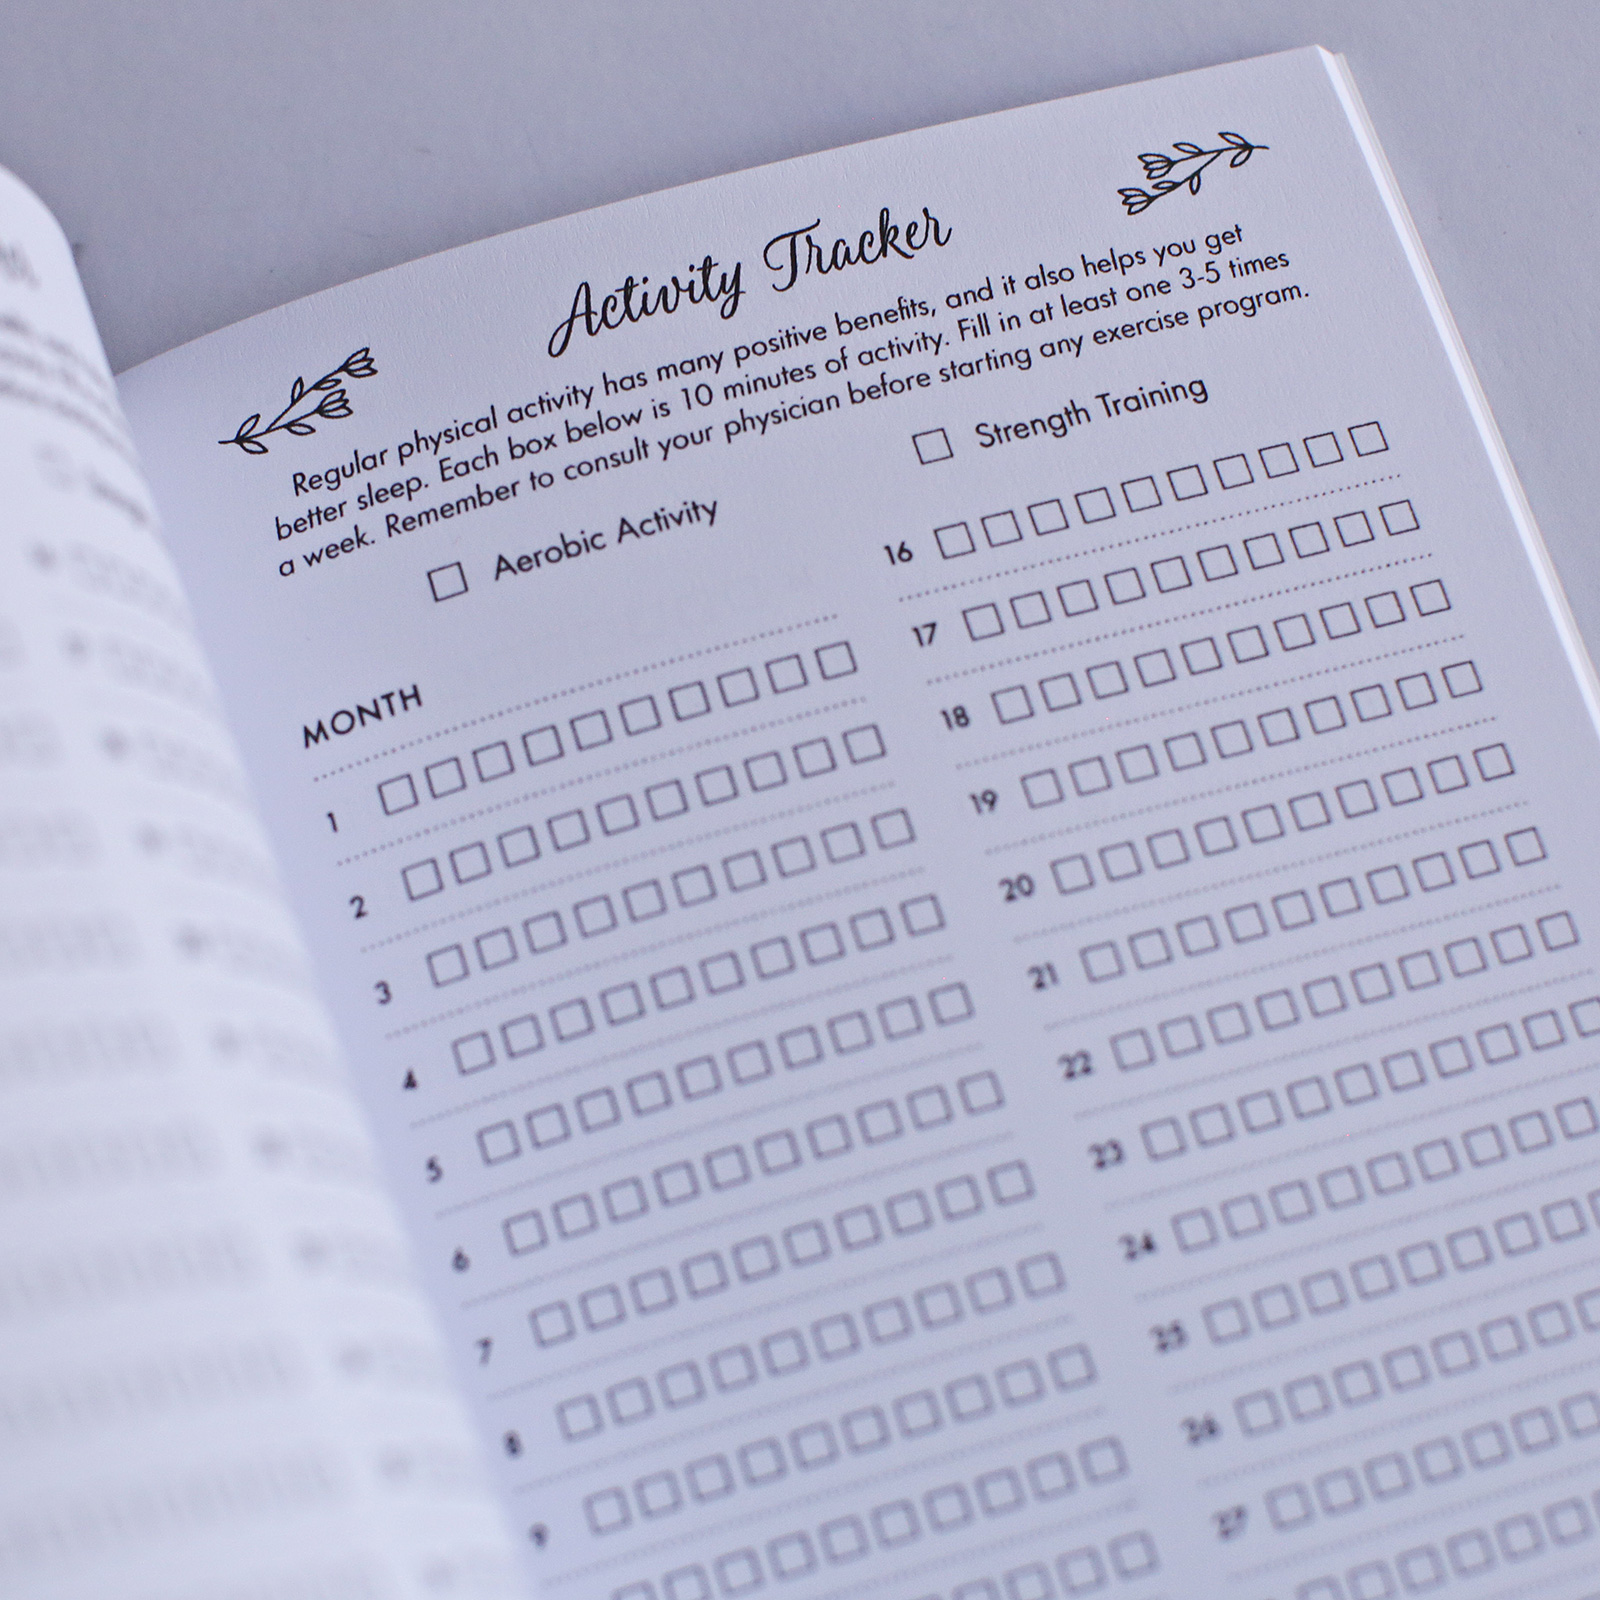 Activity Tracker
Regular physical activity has many positive benefits, and it also helps you get
better sleep. Each box below is 10 minutes of activity. Fill in at least one 3-5 times
a week. Remember to consult your physician before starting any exercise program.
Aerobic Activity
Strength Training
MONTH
1
2
3
4
5
6
7
8
9
16
17
18
19
20
21
22
23
24
25
26
27